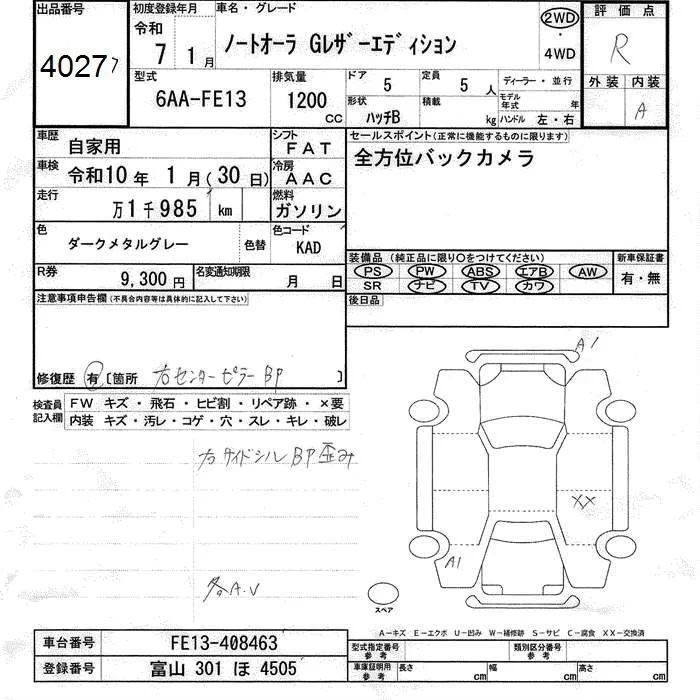 出品番号
40277
初度登録年月
令和
7 1月
車名・グレード
ノートオーラ Gレザーエディション
2WD
・
4WD
評価点
R
外装 内装
A
型式
6AA-FE13
排気量
1200
cc
ドア
5
定員
5人
形状
ハッチB
積載
kg
ディーラー・並行
モデル年式 年
ハンドル 左・右
車歴
自家用
シフト
FAT
車検
令和10年 1月(30日)
冷房
AAC
走行
万1千985 km
燃料
ガソリン
色
ダークメタルグレー
色替
色コード
KAD
R券
9,300円
名変通知期限
月 日
セールスポイント(正常に機能するものに限ります)
全方位バックカメラ
装備品(純正品に限り○をつけてください)
PS PW ABS エアB AW
SR ナビ TV カワ
新車保証書
有・無
後日品
注意事項申告欄(不具合内容等は具体的に記入して下さい)
修復歴 有 〔箇所 右センターピラーBP 〕
検査員記入欄
FW キズ・飛石・ヒビ割・リペア跡・×要
内装 キズ・汚レ・コゲ・穴・スレ・キレ・破レ
右サイドシルBP歪み
各A.U
A1
XX
A1
スペア
A-キズ E-エクボ U-凹み W-補修跡 S-サビ C-腐食 XX-交換済
車台番号
FE13-408463
登録番号
富山 301 ほ 4505
型式指定番号
参考
類別区分番号
参考
車庫証明用
参考
長さ cm
幅 cm
高さ cm